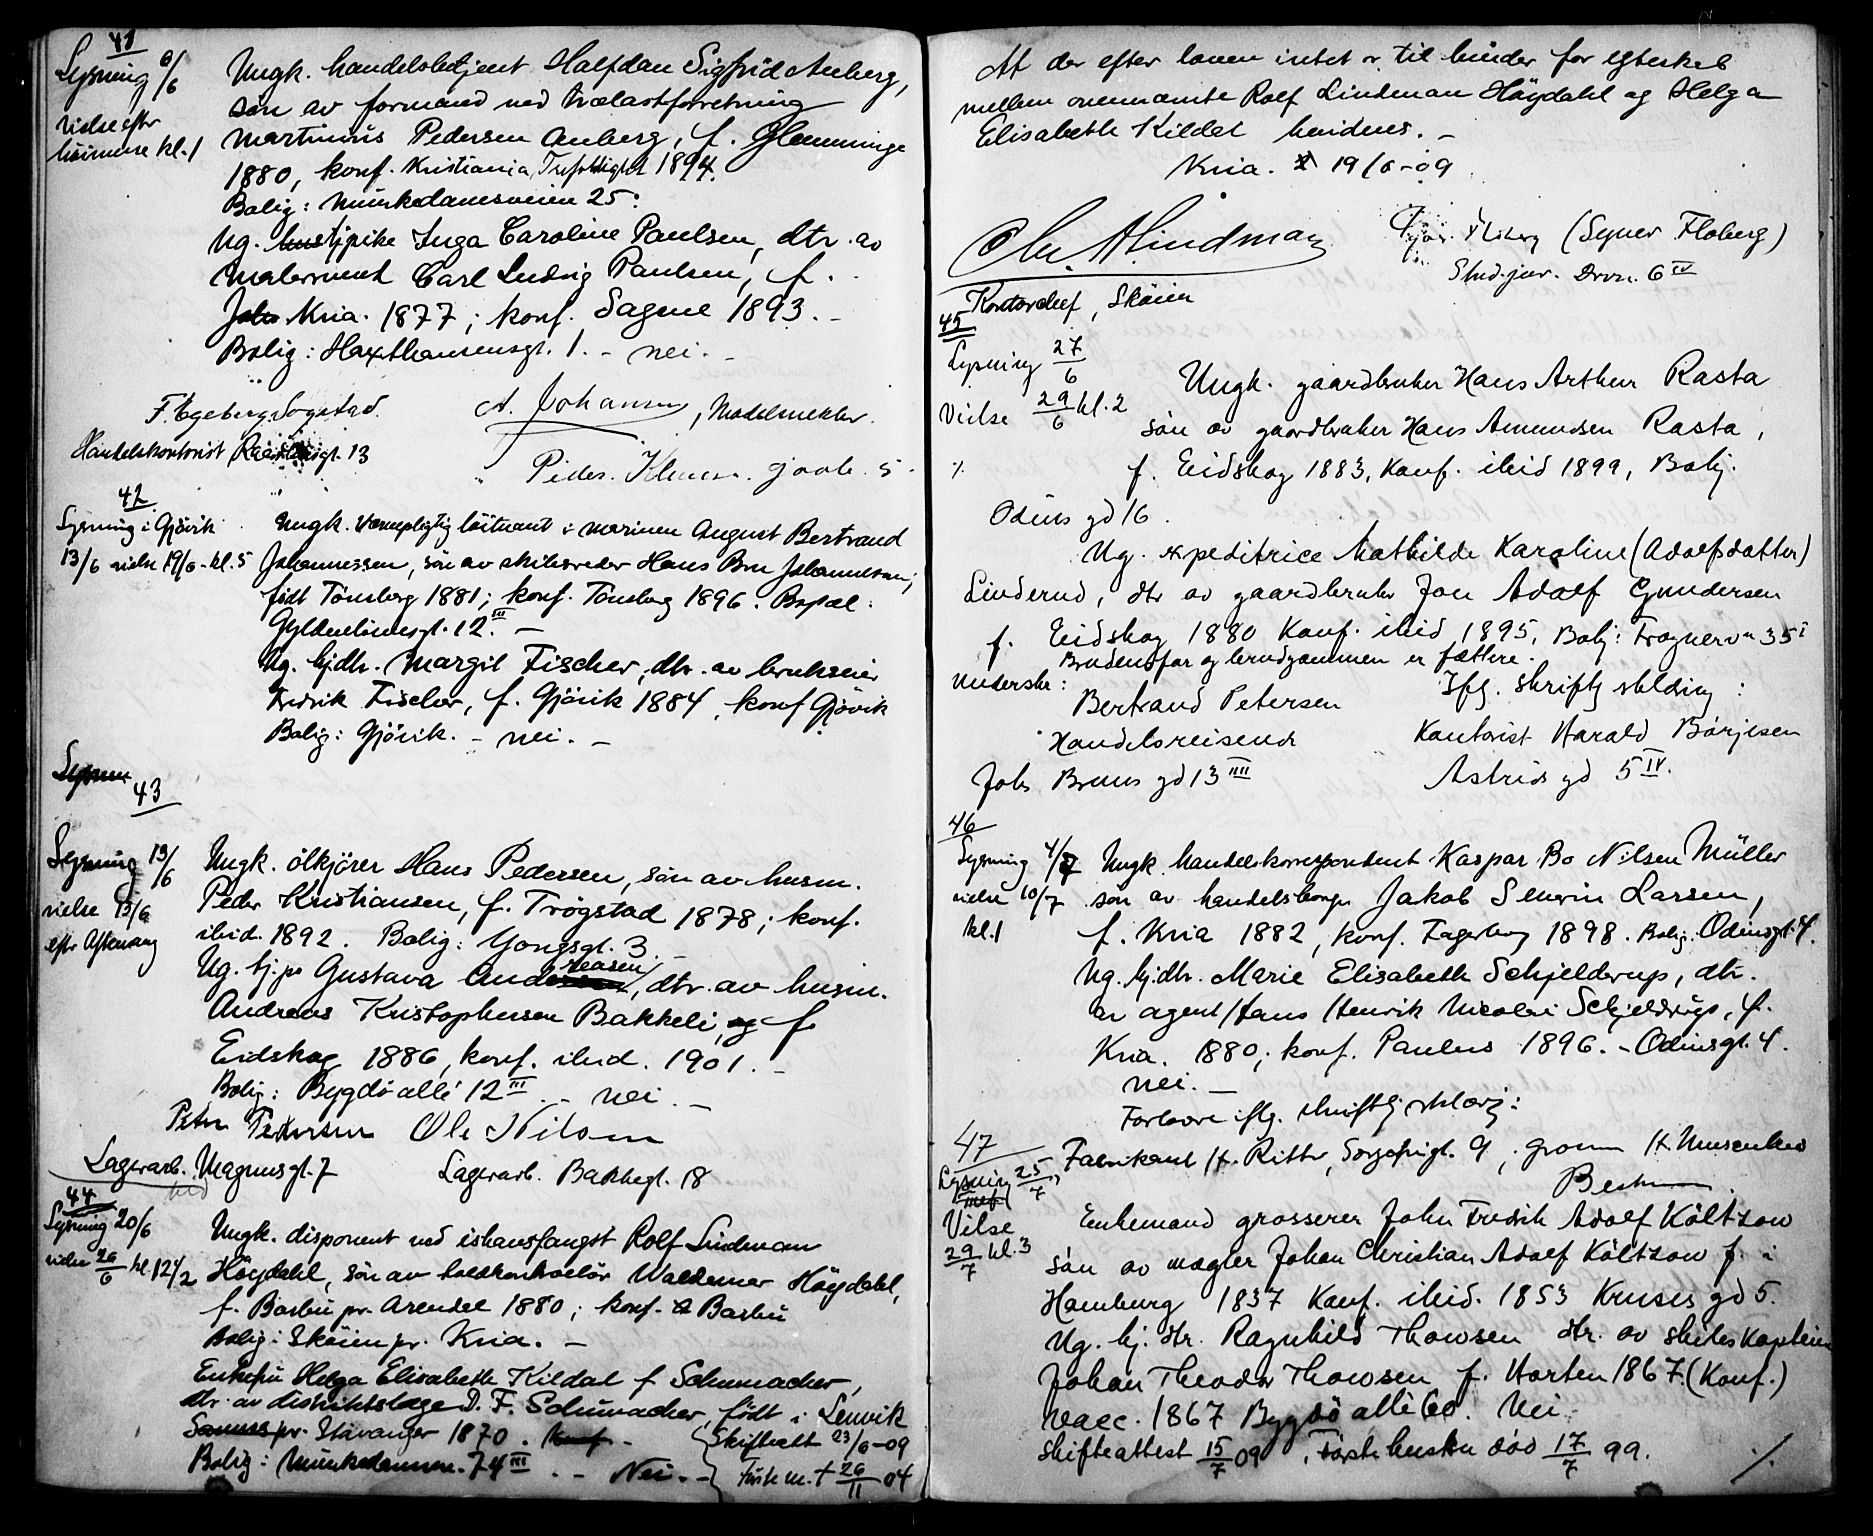 41
Lysning 6/6
Vielse efter
høimesse kl. 1
Ungk. handelsbetjent Halfdan Sigfrid Auberg,
søn av formand ved trælastforretning
Martinius Pedersen Auberg, f. Glemminge
1880, konf. Kristiania, Trefoldighet 1894.
Bolig: Munkedamsveien 25.
Ug. tjpike Inga Caroline Paulsen, dtr. av
Carl Ludvig Paulsen, f.
Kria. 1877; konf. Sagene 1893. -
Bolig: Haxthausensgt. 1. - nei. -
F. Egeberg Sogstad.
Handelskontorist 13
A. Johansen, Modelsnekker.
Peder 5
42
Lysning i Gjövik
13/6 vielse 19/6 - kl. 5
Ungk. Vernepligtig löitnant i marinen August Bertrand
Johannessen, sön av skibsreder Hans Bru Johannessen,
født Tönsberg 1881; konf. Tönsberg 1896. Bopæl:
Gyldenlövesgt. 12 III. -
Ug. hjdtr. Margit Fischer, dtr. av brukseier
Fredrik Fischer, f. Gjövik 1884, konf Gjövik
Bolig: Gjövik. - nei. -
43
Lysning 13/6
vielse 13/6
eftr Aftensang
Ungk. ölkjörer Hans Pedersen, sön av husm.
Peder Kristiansen, f. Trögstad 1878; konf.
ibid. 1892. Bolig: Yongsgt. 3. -
Ug. tj.p. Gustava Andreasen, dtr. av husm.
Andreas Kristophersen Bakkeli, f.
Eidskog 1886, konf. ibid. 1901. -
Bolig: Bygdö allé 12 III. - nei. -
Peter Pedersen Ole Nilsen
Lagerarb. Magnusgt. 7 Lagerarb. Bakkegt. 18
44
Lysning 20/6
vielse 26/6 kl 12 1/2
Ungk. disponent ved ishavsfangst Rolf Lindman
Höydahl, sön av toldkontrolör Waldemar Höydahl,
f. Barbu pr. Arendal 1880; konf. Barbu
Bolig: Sköien pr. Kria. -
Enkefru Helga Elisabeth Kildal f Schumacher,
dtr. av distriktslæge D. F. Schumacher, født i Lenvik
pr. Stavanger 1870. Skifteatt 23/6-09
Bolig: Munkedamsv. 74 III. - Nei. - Første m. † 26/11 04
At der efter loven intet er til hinder for egteskab
mellem ovennævnte Rolf Lindman Höydahl og Helga
Elisabeth Kildal bevidnes. -
Kria. 19/6-09
Chr. A Lindman
Kontorchef, Sköien
(Syver Floberg)
Stud. jur. Drvn. 6 IV
45
Lysning 27/6
Vielse 29/6 kl. 2
Ungk. gaardbruker Hans Arthur Rasta
sön av gaardbruker Hans Amundsen Rasta,
f. Eidskog 1883, Konf. ibid 1899, Bolig.
Odins gd 16.
Ug. expeditrice Mathilde Karoline (Adolfsdatter)
Linderud, dtr av gaardbruker Jon Adolf Gundersen
f. Eidskog 1880 Konf. ibid 1895, Bolig: Frognervn 35 I
Brudens far og brudgommen er fættere.
Underskr:
Bertrand Petersen
Handelsreisende
Johs Bruns gd 13 IIII
Iflg. skriftlig melding:
Kontorist Harald Börjesen
Astrids gd 5 IV.
46
Lysning 4/7
vielse 10/7
kl. 1
Ungk. handelskorrespondent Kaspar Bo Nilsen Müller
sön av handelsborger Jakob Severin Larsen,
f. Kria 1882, konf. Fagerborg 1898. Bolig: Odinsgt. 4.
Ug. hjdtr. Marie Elisabeth Schjelderup, dtr.
av agent Hans Henrik Nicolai Schjelderup, f.
Kria. 1880; konf. Paulus 1896. - Odinsgt. 4.
nei. -
Forlovere iflg. skriftlig erklæring:
Fabrikant H. Ritter, Sorgenfrigt. 9,
47
Lysning 25/7
Vilse
29/7 kl. 3
Enkemand grosserer John Fredrik Adolf Költzow
sön av mægler Johan Christian Adolf Költzow f. i
Hamburg 1837 Konf. ibid. 1853 Kruses gd 5.
Ug. hj. dtr. Ragnhild Thowsen dtr. av skibskaptein
Johan Theodor Thowsen f. Horten 1867. (Konf.)
vacc. 1867 Bygdö allé 60. Nei
Skifteattest 15/7 09. Første hustru död 17/7 99.